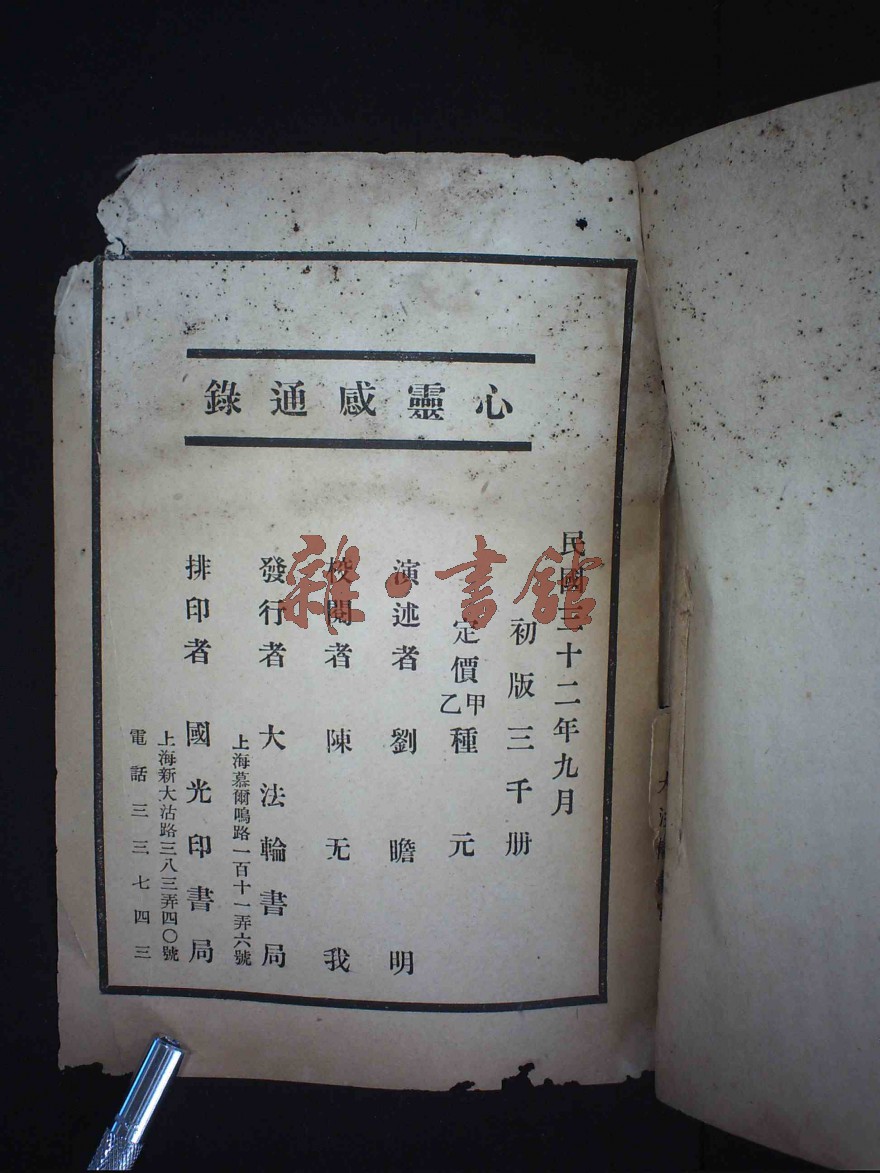 心靈感通錄
民國三十二年九月
初版三千册
定價甲乙種元
演述者劉瞻明
校閱者陳无我
發行者大法輪書局
上海慕爾鳴路一百十一弄六號
排印者國光印書局
上海新大沽路三八三弄四〇號
電話三三七四三
雜·書館